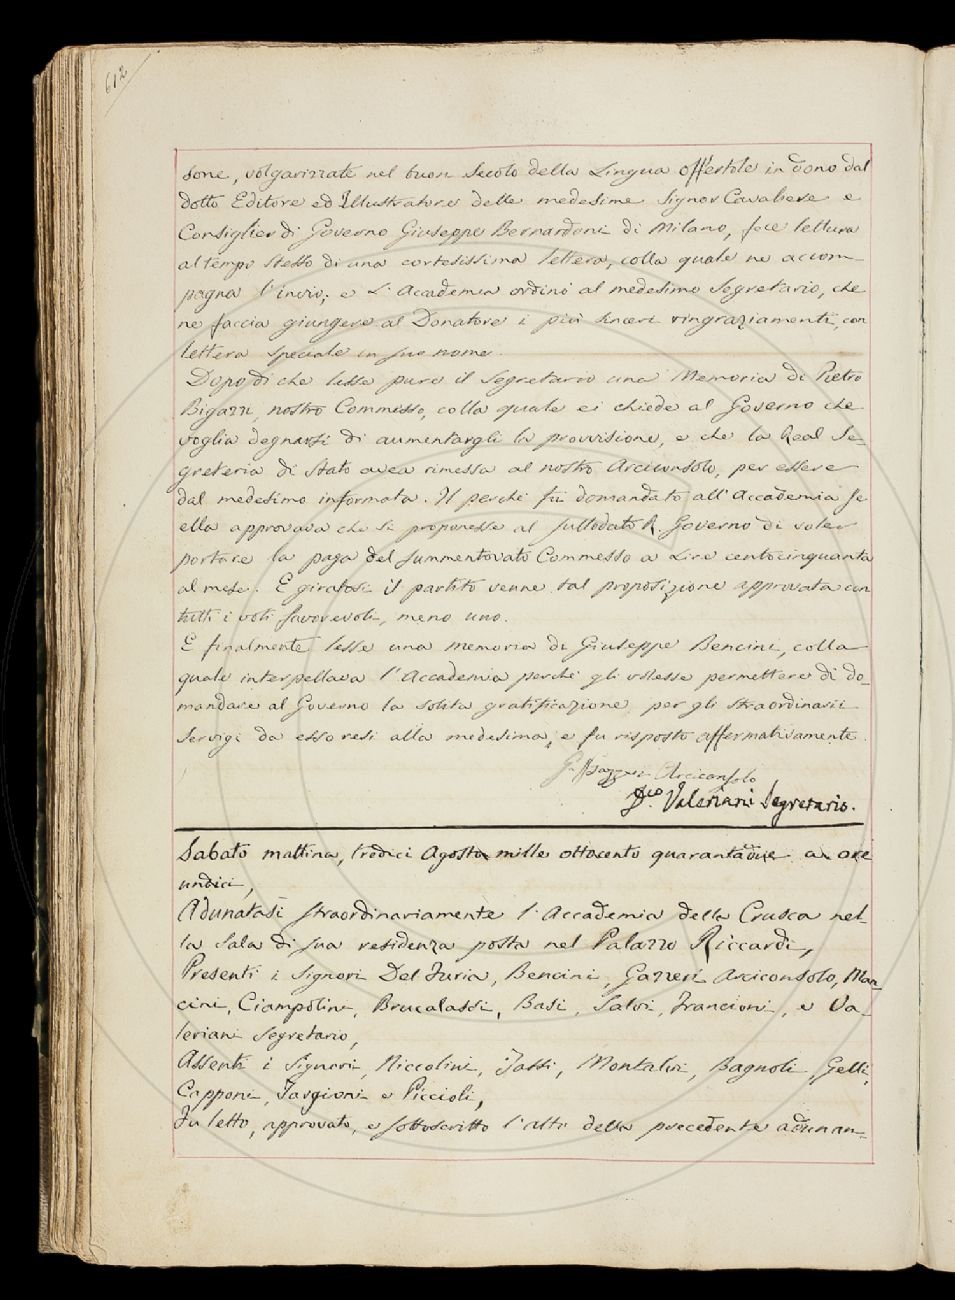 612
sone, volgarizzate nel buon Secolo della Lingua offertole in dono dal
dotto Editore ed Illustratore delle medesime Signor Cavaliere e
Consiglier di Governo Giuseppe Bernardoni di Milano, fece lettura
al tempo stesso di una cortesissima lettera, colla quale ne accom-
pagna l'invio; e L'Accademia ordinò al medesimo Segretario, che
ne faccia giungere al Donatore i più sinceri ringraziamenti, con
lettera speciale in suo nome.
Dopo di che lesse pure il Segretario una Memoria di Pietro
Bigazzi, nostro Commesso, colla quale ei chiede al Governo che
voglia degnarsi di aumentargli la provvisione, e che la Real Se-
greteria di Stato avea rimessa al nostro Arciconsolo, per essere
dal medesimo informata. Il perchè fù domandato all'Accademia se
ella approvava che si proponesse al sullodato R. Governo di voler
portare la paga del summentovato Commesso a Lire centocinquanta
al mese. E giratosi il partito venne tal proposizione approvata con
tutti i voti favorevoli, meno uno.
E finalmente lesse una memoria di Giuseppe Bencini, colla
quale interpellava l'Accademia perchè gli volesse permettere di do-
mandare al Governo la solita gratificazione per gli straordinarii
servigi da esso resi alla medesima, e fu risposto affermativamente.
G. Gazzeri Arciconsolo
Dco. Valeriani Segretario.
Sabato mattina, tredici Agosto mille ottocento quarantadue a ore
undici,
Adunatasi straordinariamente l'Accademia della Crusca nel-
la Sala di sua residenza posta nel Palazzo Riccardi,
Presenti i Signori Del Furia, Bencini, Gazzeri Arciconsolo, Man-
cini, Ciampolini, Brucalassi, Basi, Salvi, Francioni, e Va-
leriani Segretario,
Assenti i Signori, Niccolini, Tassi, Montalvi, Bagnoli, Gelli,
Capponi, Targioni e Piccioli,
Fu letto, approvato, e sottoscritto l'atto della precedente adunan-